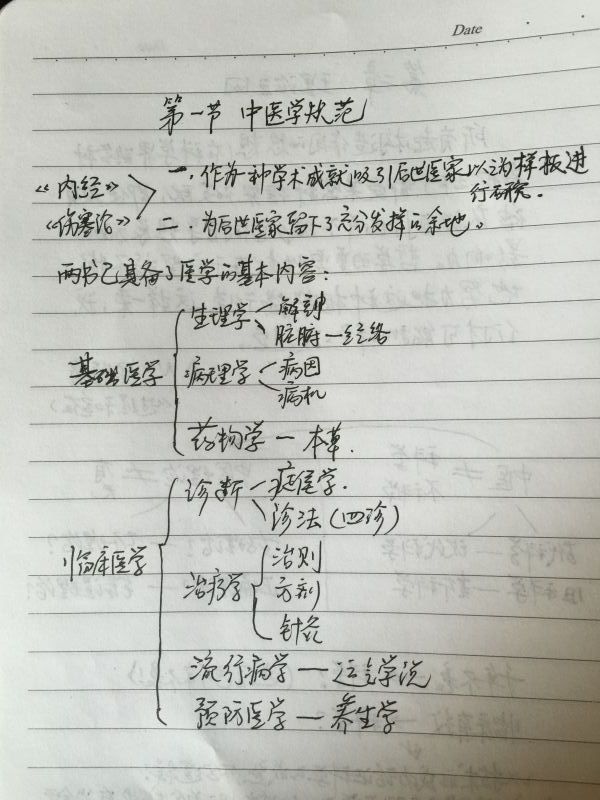 Date
第一节 中医学规范
《内经》
《伤寒论》
一、作为一种学术成就吸引后世医家以之为样板进
行研究.
二、为后世医家留下了充分发挥的余地。
两书已具备了医学的基本内容：
基础医学
生理学
解剖
脏腑—经络
病理学
病因
病机
药物学—本草.
临床医学
诊断
症医学.
诊法(四诊)
治疗学
治则
方剂
针灸
流行病学—运气学说
预防医学—养生学